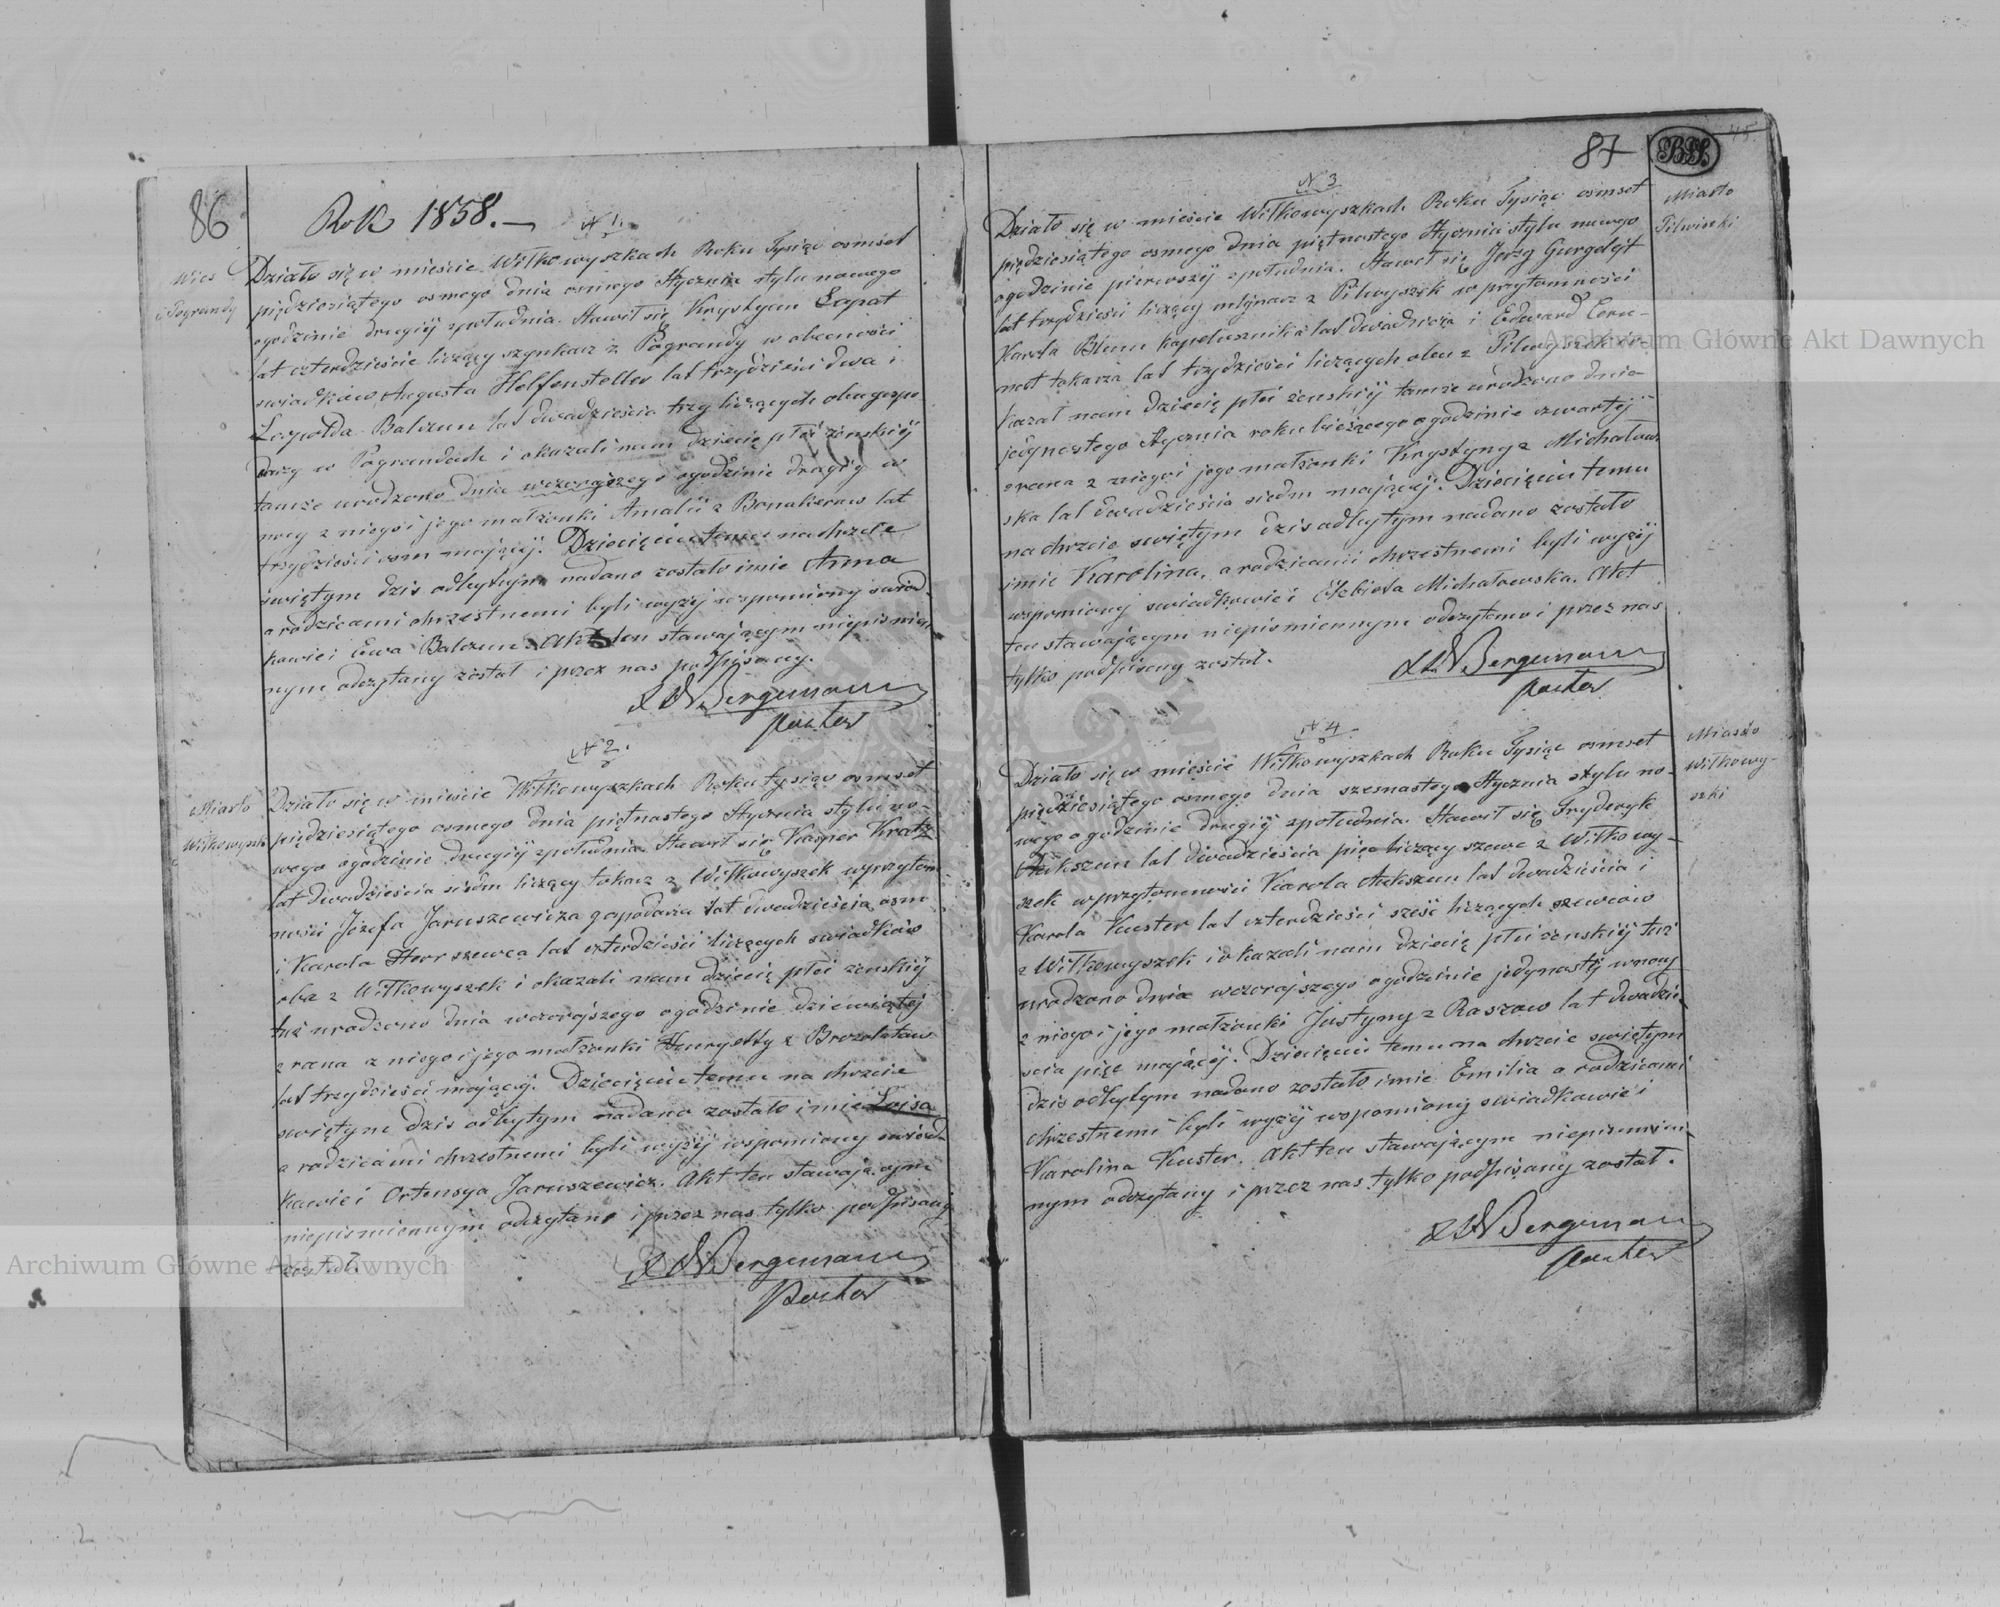 86
Rok 1858. —
N 1.
Wieś
Pograndy
Działo się w mieście Wiłkowyszkach Roku Tysiąc osmset
pięździesiątego osmego dnia osmego Stycznia stylu nowego
ogodzinie drugiéj zpołudnia. Stawił się Krystyan Łapat
lat czterdzieście liczący szynkarz z Pograndy w obecności
swiadków Augusta Helfensteller lat trzydzieści dwa i
Leopolda Balczun lat dwadzieścia trzy liczących obu gospo
darzy w Pograndach i okazali nam dziecię płci żeńskiéj
tamże urodzone dnia wczorajszego ogodzinie drugiéj w
nocy z niego i jego małżonki Amalii z
trzydzieści osm mającéj. Dziecięciu temu na chrzcie
świętym dzis odbytym nadano zostało imie Anna
a rodzicami chrzestnemi byli wyżéj wspomniony swiad-
kowie i Ewa Balczun. Akt ten stawającym niepismien
nym odczytany został i przez nas podpisany.
Bergemann
Pastor
N 2.
Miasto
Wiłkowyszki
Działo się w mieście Wiłkowyszkach Roku tysiąc osmset
pięździesiątego osmego dnia piętnastego Stycznia stylu no-
wego ogodzinie drugiéj zpołudnia. Stawił się Kasper Kratz
lat dwadzieścia siedm liczący tokarz z Wiłkowyszek wprzytom
ności Józefa Jaruszewicza gospodarza lat dwadzieścia osm
i Karola Herr szewca lat czterdzieści liczących swiadków
oba z Wiłkowyszek i okazali nam dziecię płci żenskiéj
tuż urodzone dnia wczorajszego ogodzinie dziewiątéj
zrana z niego i jego małżonki Henryetty z
lat trzydzieści mającéj. Dziecięciu temu na chrzcie
swiętym dzis odbytym nadano zostało imie Lojsa
a rodzicami chrzestnemi byli wyżéj wspomniony swiad-
kowie i Ortensya Jaruszewicz. Akt ten stawającym
niepismiennym odczytano i przez nas tylko podpisany
został.
Bergemann
Pastor
87
45
N 3
Miasto
Pilwiszki
Działo się w mieście Wiłkowyszkach Roku Tysiąc osmset
pięździesiątego osmego dnia piętnastego Stycznia stylu nowego
ogodzinie pierwszéj zpołudnia. Stawił się Jerzy Gurgdejt
lat trzydzieści liczący młynarz z Pilwyszek w przytomności
Karola Blum kapelusznika lat dwadzieścia i Edward Cern-
not tokarza lat trzydzieści liczących obu z Pilwyszek i o-
kazał nam dziecię płci żenskiéj tamże urodzono dnia
jedynastego Stycznia roku bieżącego ogodzinie czwartéj
zrana z niego i jego małżonki Krystyny z Michałow-
ska lat dwadzieścia siedm mającéj. Dziecięciu temu
na chrzcie swiętym dzis odbytym nadano zostało
imie Karolina, a rodzicami chrzestnemi byli wyżéj
wspomniony swiadkowie i Elżbieta Michałowska. Akt
ten stawającym niepismiennym odczytano i przez nas
tylko podpisany został.
Bergemann
Pastor
N 4
Miasto
Wiłkowy-
szki
Działo się w mieście Wiłkowyszkach Roku Tysiąc osmset
pięździesiątego osmego dnia szesnastego Stycznia stylu no-
wego ogodzinie drugiéj zpołudnia. Stawił się Fryderyk
Aukszun lat dwadzieścia pięc liczący szewc z Wiłkowy-
szek wprzytomności Karola Aukszun lat dwadzieścia i
Karola Kuster lat czterdzieści sześc liczących szewców
z Wiłkowyszek i okazali nam dziecię płci żenskiéj tuż
urodzono dnia wczorajszego ogodzinie jedynastéj wnocy
z niego i jego małżonki Justyny z Raszow lat dwadzie-
scia pięc mającéj. Dziecięciu temu na chrzcie swiętym
dzis odbytym nadano zostało imie Emilia a rodzicami
chrzestnemi byli wyżéj wspomniony swiadkowie i
Karolina Kuster. Akt ten stawającym niepismien-
nym odczytany i przez nas tylko podpisany został.
Bergemann
Pastor
Archiwum Główne Akt Dawnych
Archiwum Główne Akt Dawnych